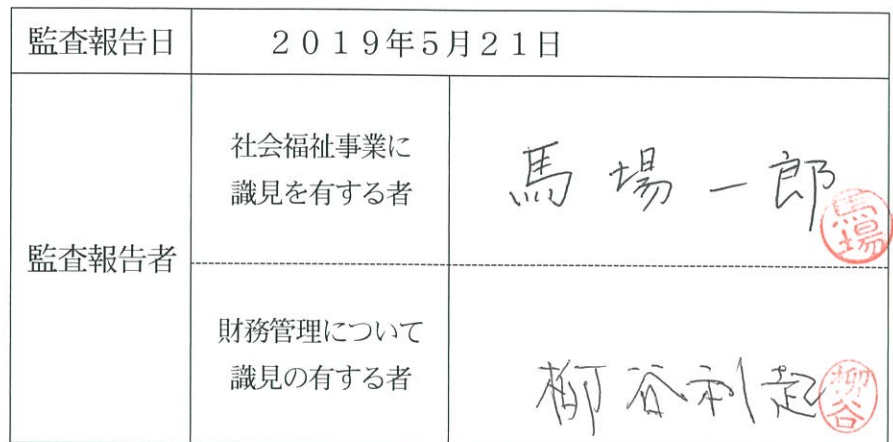 監査報告日
２０１９年５月２１日
監査報告者
社会福祉事業に
識見を有する者
馬場一郎
馬場
財務管理について
識見の有する者
柳谷利起
柳谷